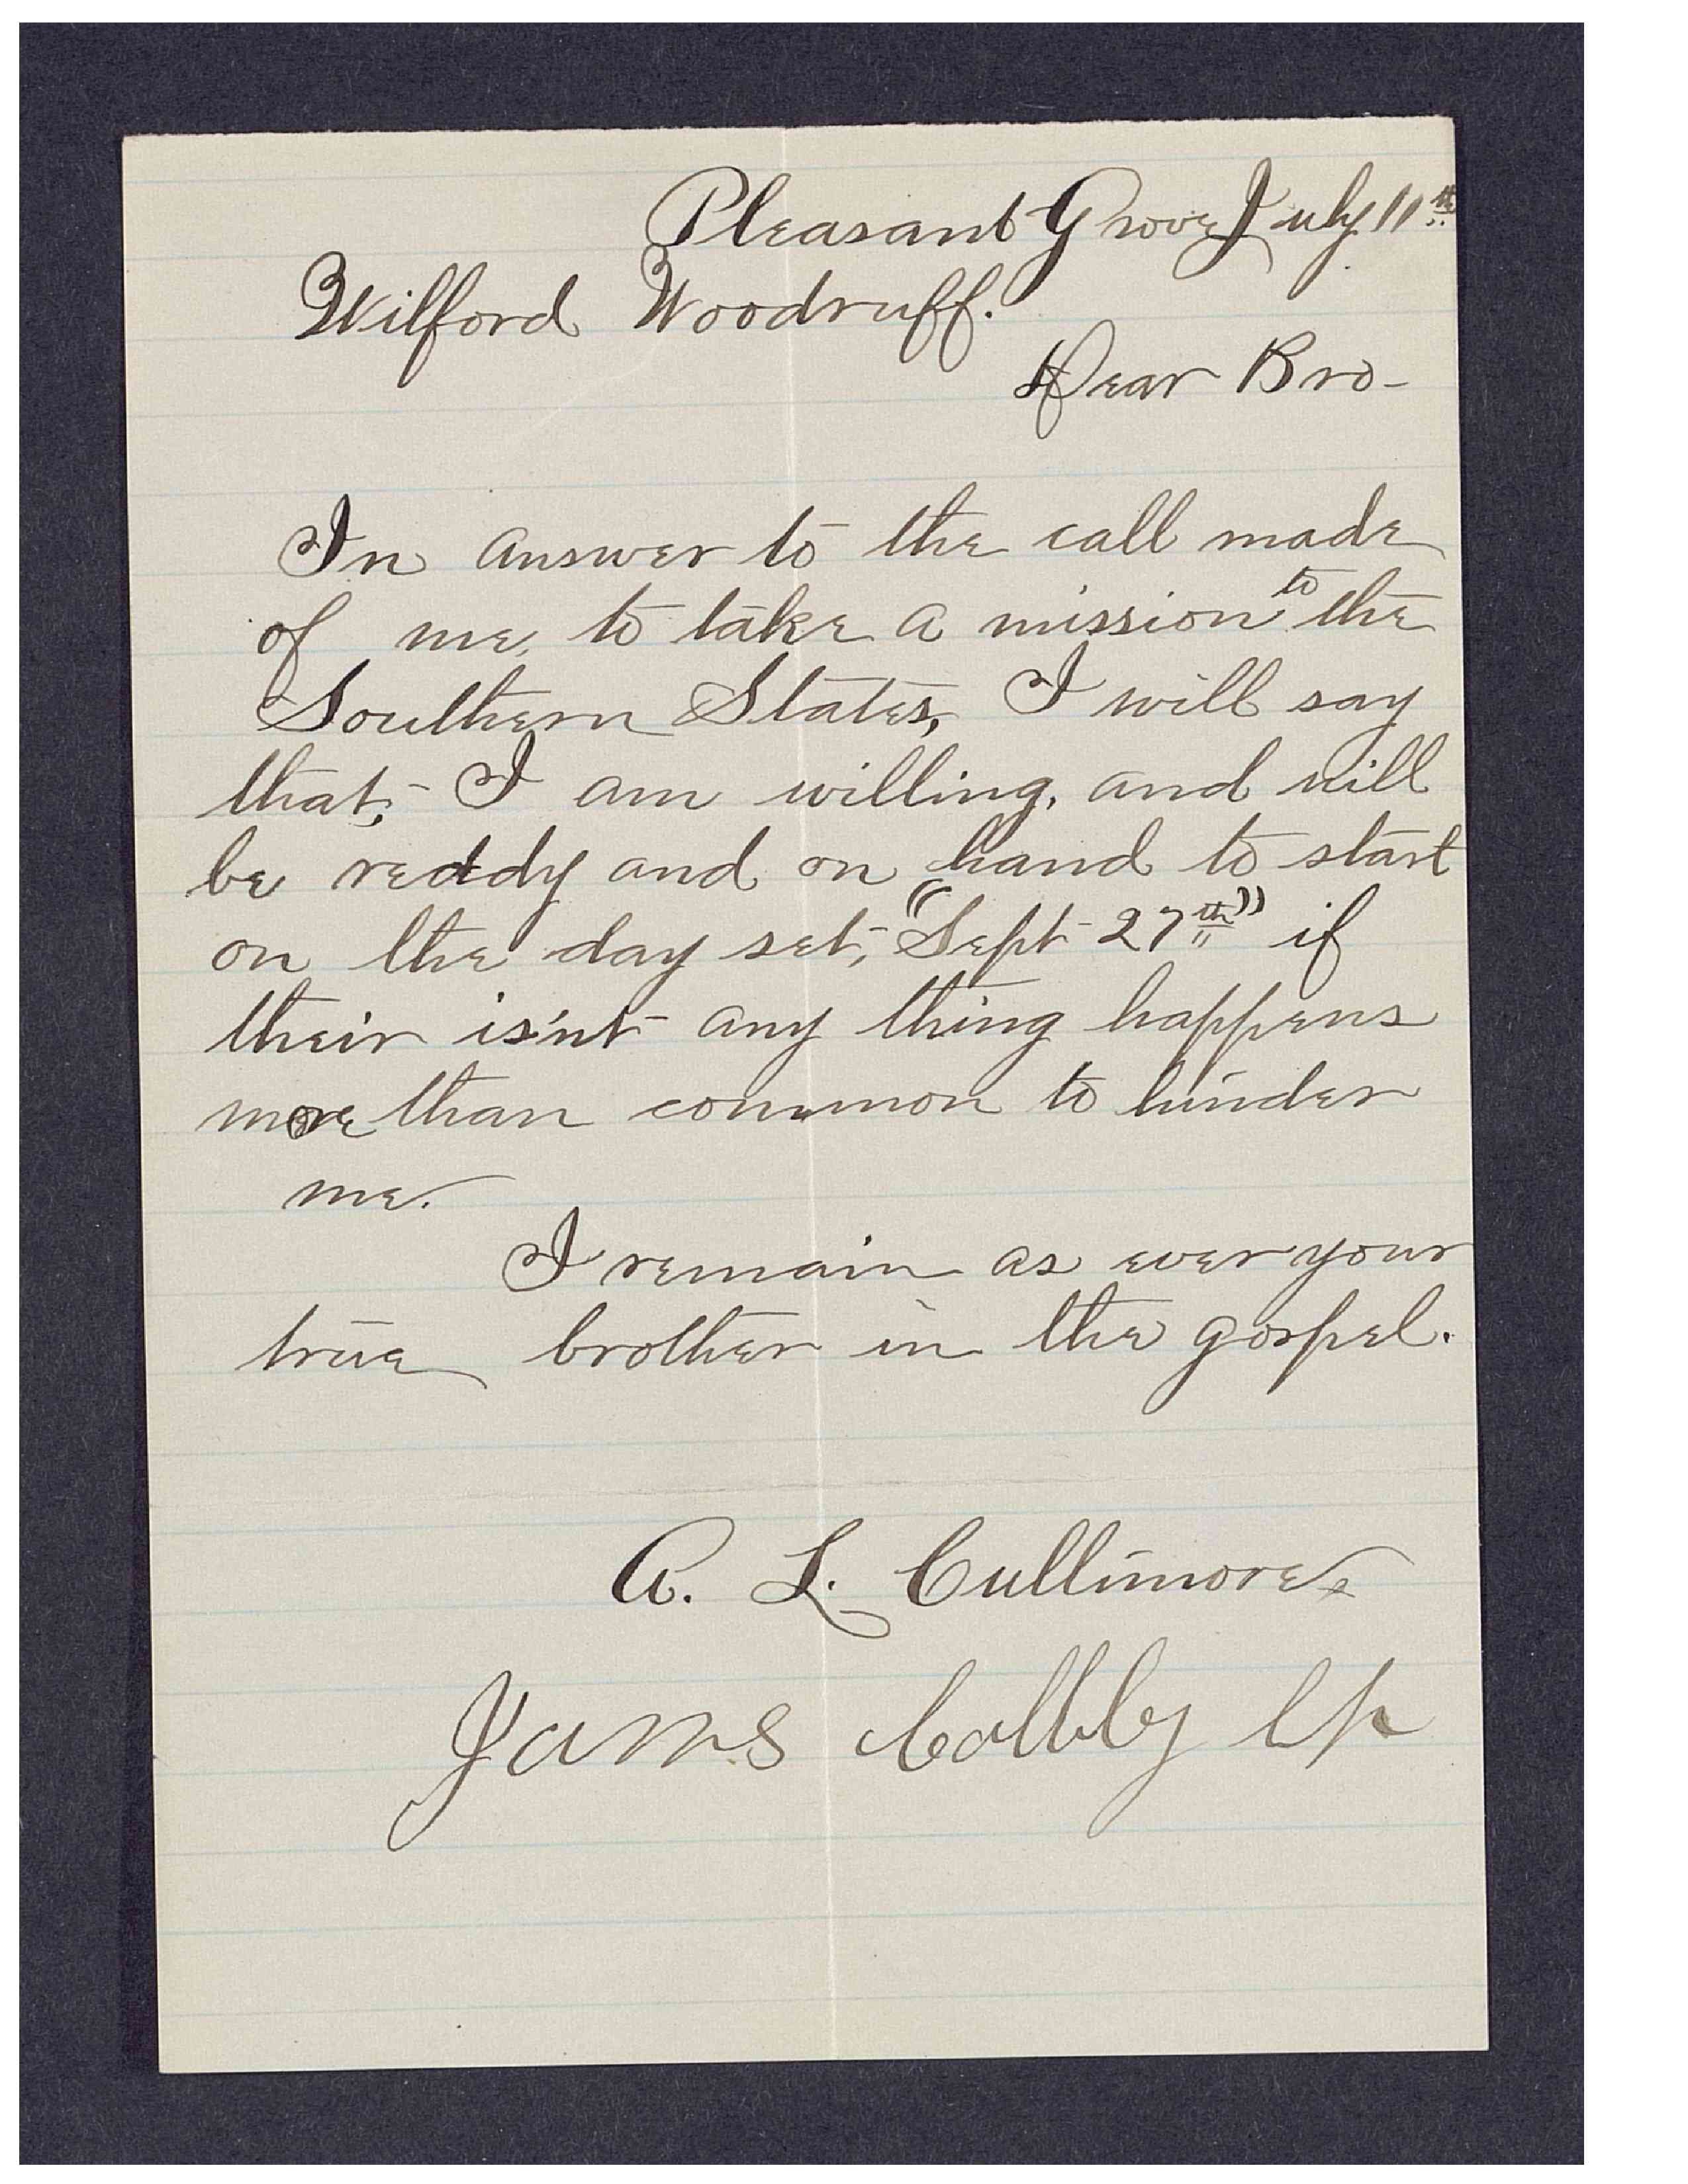 Pleasant Grove July 11th
Wilford Woodruff.
Dear Bro-
In answer to the call made
of me, to take a mission to the
Southern States, I will say
that, I am willing, and will
be reddy and on hand to start
on the day set, "Sept 27th" if
their is'nt any thing happens
more than common to hinder
me.
I remain as ever your
true brother in the gospel.
A. L. Cullimore
James